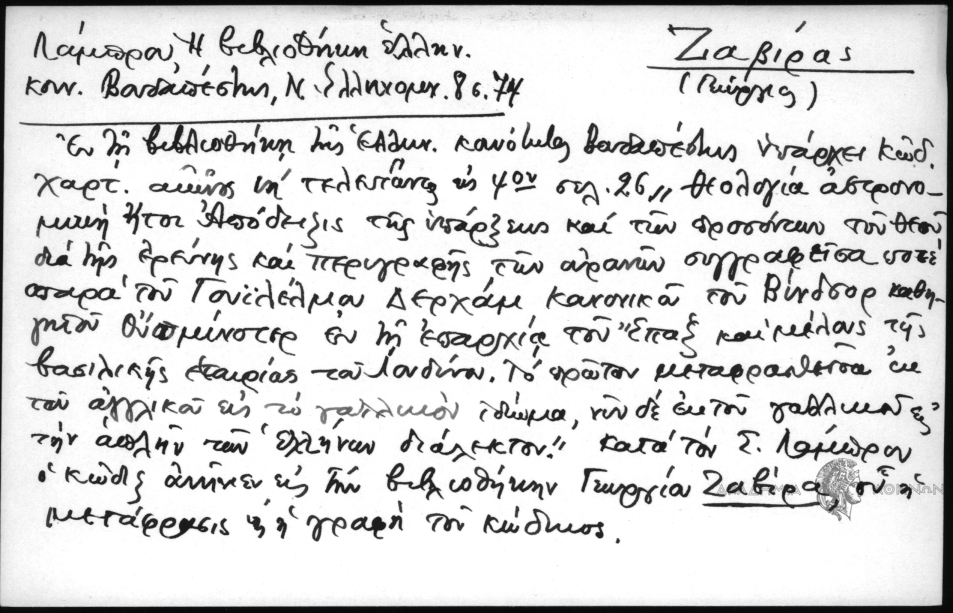 Λάμπρου, Ἡ βιβλιοθήκη ἑλλην.
κοιν. Βουδαπέστης, Ν. Ἑλληνομν. 8 σ. 74
Ζαβίρας
(Γεώργιος)
Ἐν τῇ βιβλιοθήκῃ τῆς Ἑλλην. κοινότητος Βουδαπέστης ὑπάρχει κῶδ.
χαρτ. αἰῶνος ιη΄ τελευτῶντος εἰς 4ον σελ. 26 „ Θεολογία ἀστρονο-
μικὴ ἤτοι Ἀπόδειξις τῆς ὑπάρξεως καὶ τῶν προσόντων τοῦ θεοῦ
διὰ τῆς ἐρεύνης καὶ περιγραφῆς τῶν οὐρανῶν συγγραφεῖσα ποτὲ
παρὰ τοῦ Γουϊλέλμου Δερχὰμ κανονικοῦ τοῦ Βίνδσορ καθη-
γητοῦ Οὐπμίνστερ ἐν τῇ ἐπαρχίᾳ τοῦ Ἔπαξ καὶ μέλους τῆς
βασιλικῆς ἑταιρίας τοῦ Λονδίνου. Τὸ πρῶτον μεταφρασθεῖσα ἐκ
τοῦ ἀγγλικοῦ εἰς τὸ γαλλικὸν ἰδίωμα, νῦν δὲ ἐκ τοῦ γαλλικοῦ εἰς
τὴν ἁπλῆν τῶν Ἑλλήνων διάλεκτον". Κατὰ τὸν Σ. Λάμπρου
ὁ κῶδιξ ἀνῆκεν εἰς τὴν βιβλιοθήκην Γεωργίου Ζαβίρα, οὗ ἡ
μετάφρασις ἢ ἡ γραφὴ τοῦ κώδικος.